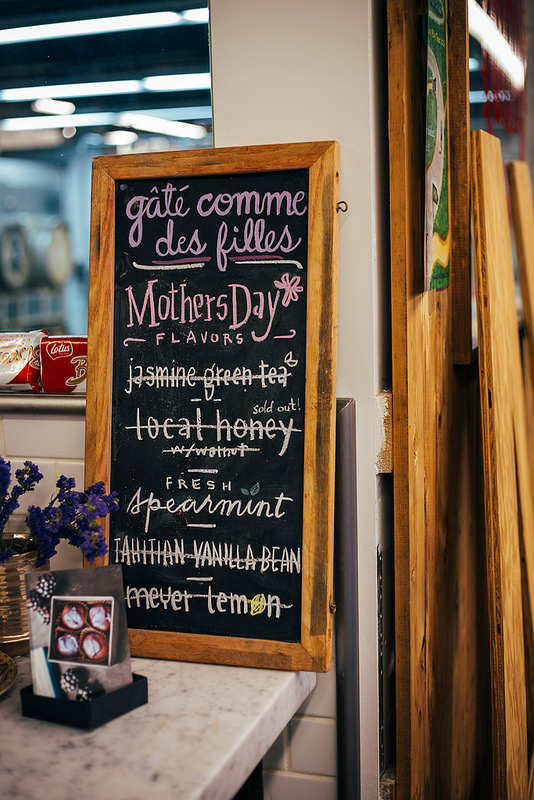 gâté comme
des filles
MothersDay
FLAVORS
jasmine green tea
sold out!
local honey
w/walnut
FRESH
spearmint
TAHITIAN VANILLA BEAN
meyer lemon
Lotus